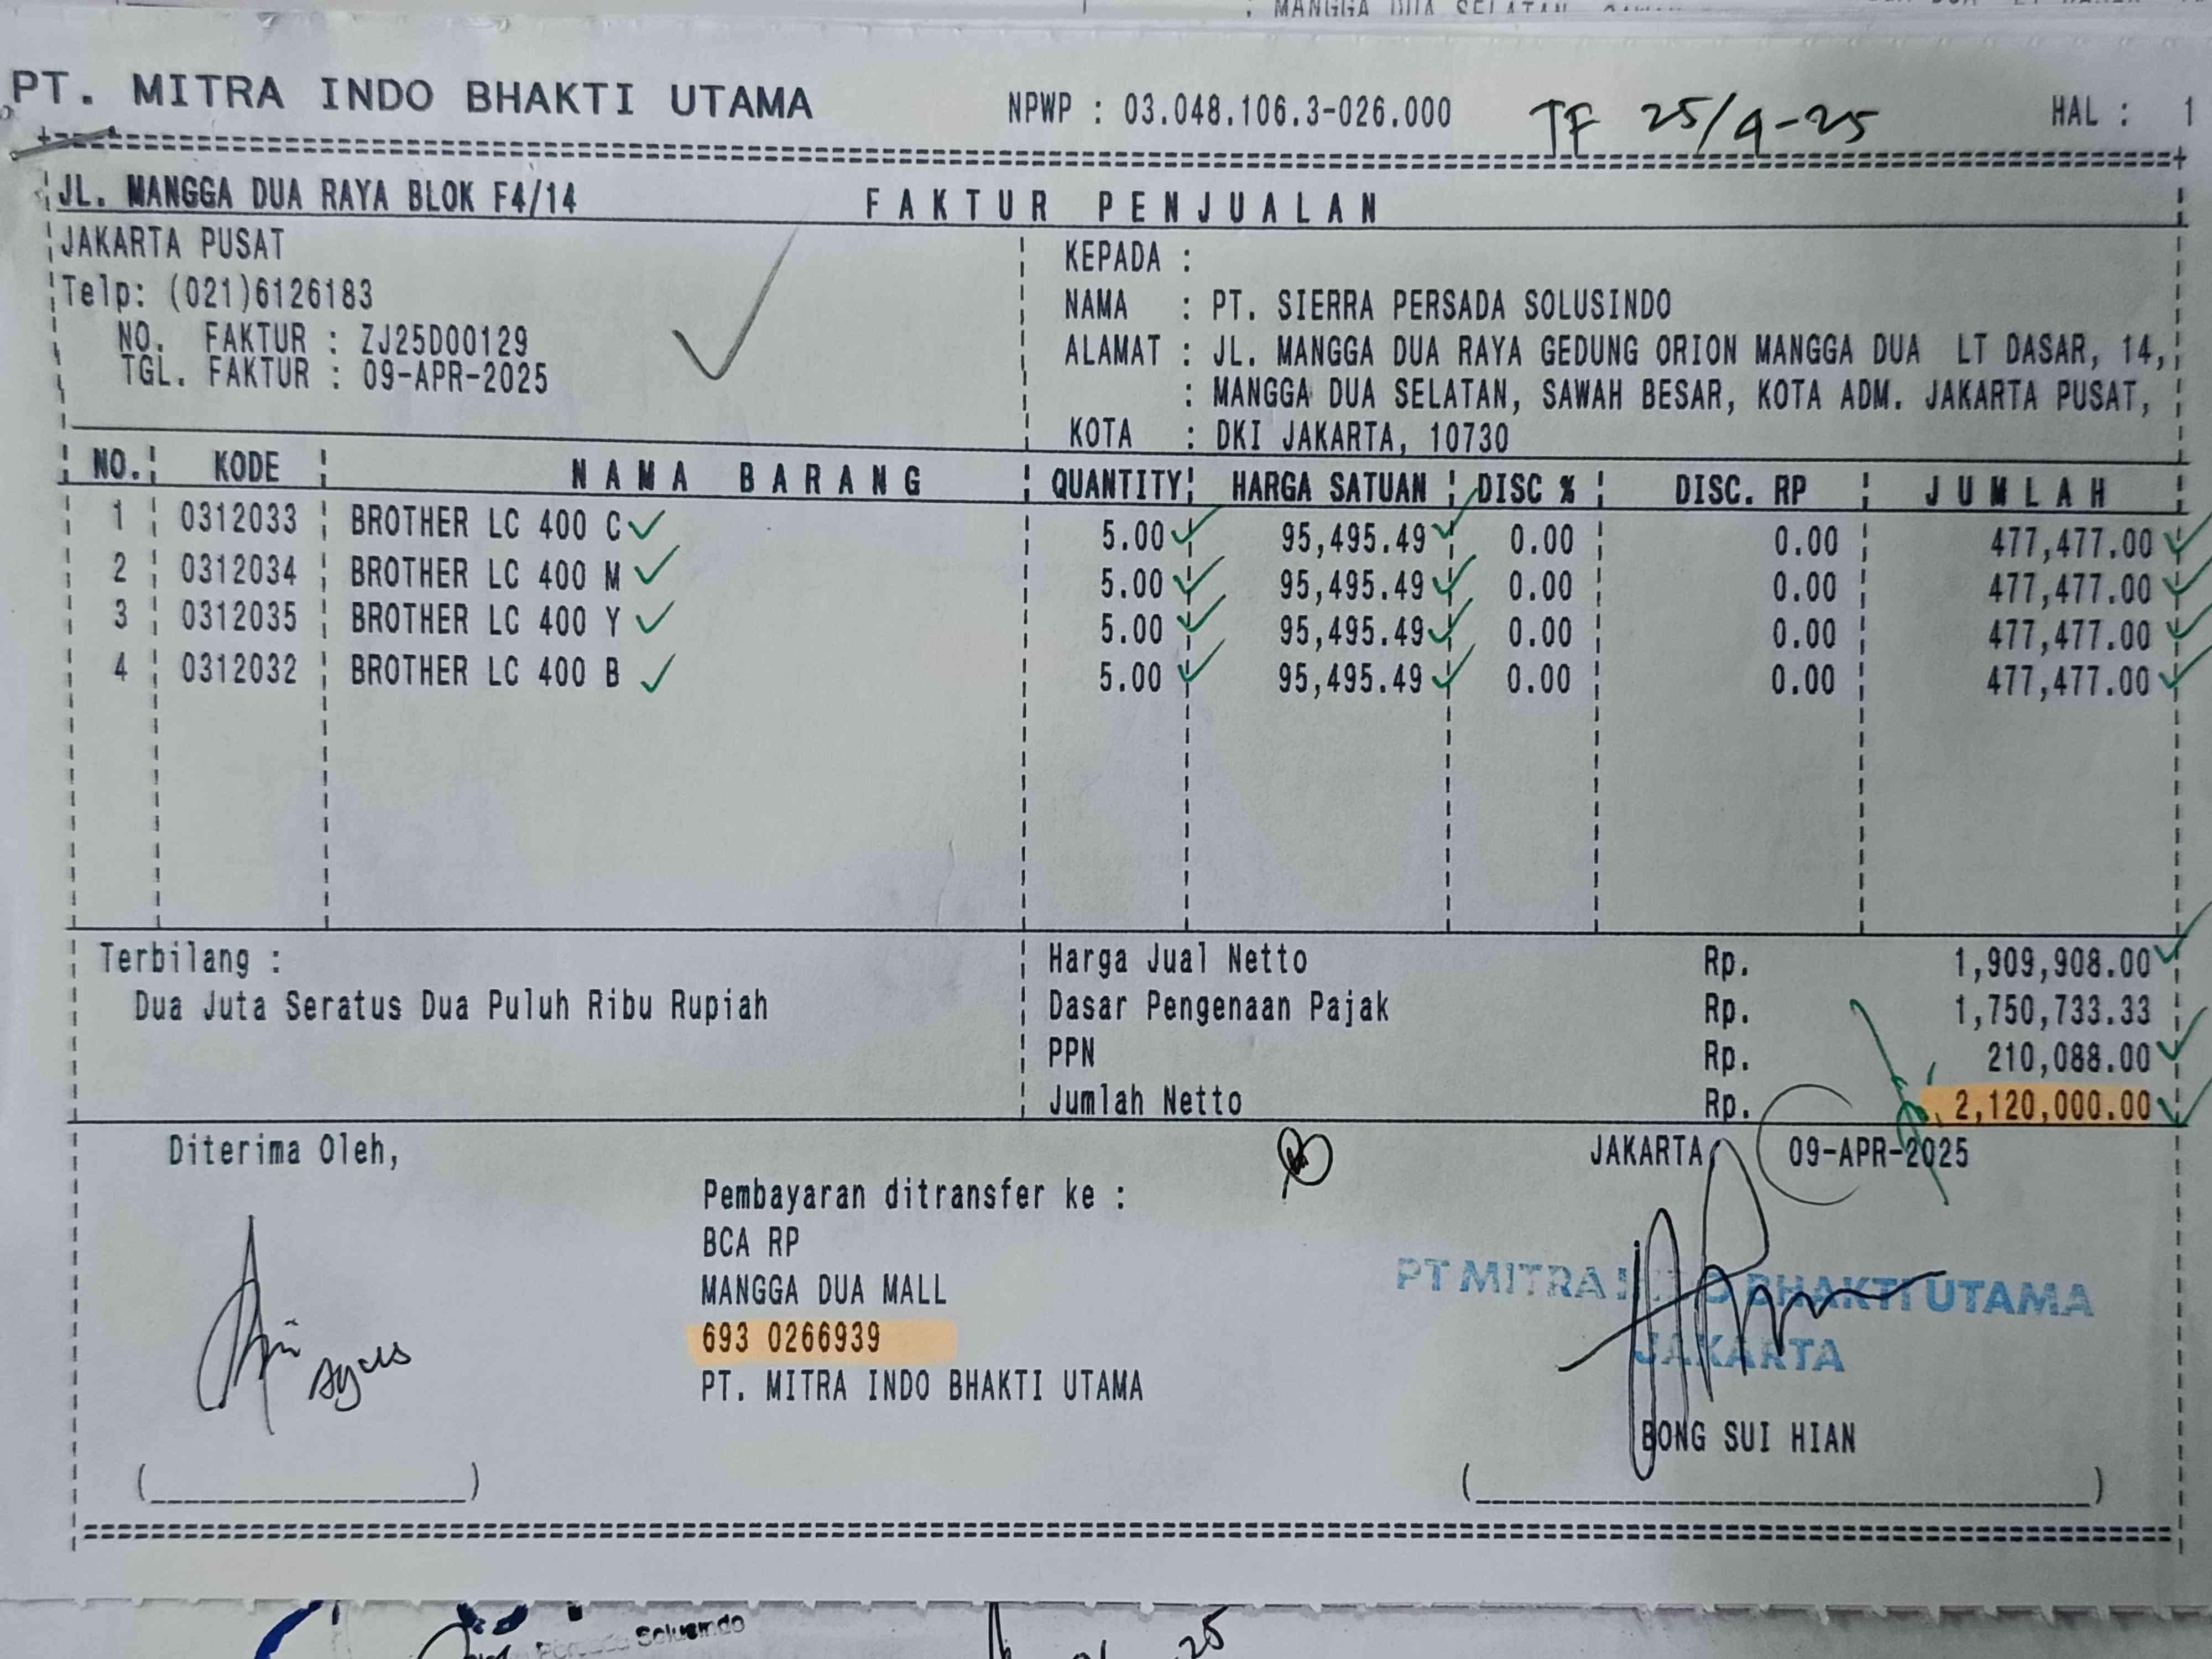 MANGGA DUA SELATAN
PT. MITRA INDO BHAKTI UTAMA NPWP : 03.048.106.3-026.000 TF 25/4-25 HAL : 1
JL. MANGGA DUA RAYA BLOK F4/14 FAKTUR PENJUALAN
JAKARTA PUSAT
Telp: (021)6126183
NO. FAKTUR : ZJ25D00129
TGL. FAKTUR : 09-APR-2025
KEPADA :
NAMA : PT. SIERRA PERSADA SOLUSINDO
ALAMAT : JL. MANGGA DUA RAYA GEDUNG ORION MANGGA DUA LT DASAR, 14,
: MANGGA DUA SELATAN, SAWAH BESAR, KOTA ADM. JAKARTA PUSAT,
KOTA : DKI JAKARTA, 10730
NO. KODE NAMA BARANG QUANTITY HARGA SATUAN DISC % DISC. RP JUMLAH
1 0312033 BROTHER LC 400 C 5.00 95,495.49 0.00 0.00 477,477.00
2 0312034 BROTHER LC 400 M 5.00 95,495.49 0.00 0.00 477,477.00
3 0312035 BROTHER LC 400 Y 5.00 95,495.49 0.00 0.00 477,477.00
4 0312032 BROTHER LC 400 B 5.00 95,495.49 0.00 0.00 477,477.00
Terbilang :
Dua Juta Seratus Dua Puluh Ribu Rupiah
Harga Jual Netto Rp. 1,909,908.00
Dasar Pengenaan Pajak Rp. 1,750,733.33
PPN Rp. 210,088.00
Jumlah Netto Rp. 2,120,000.00
Diterima Oleh,
JAKARTA 09-APR-2025
Pembayaran ditransfer ke :
BCA RP
MANGGA DUA MALL
693 0266939
PT. MITRA INDO BHAKTI UTAMA
Agus
PT MITRA INDO BHAKTI UTAMA
JAKARTA
BONG SUI HIAN
Solusindo
25